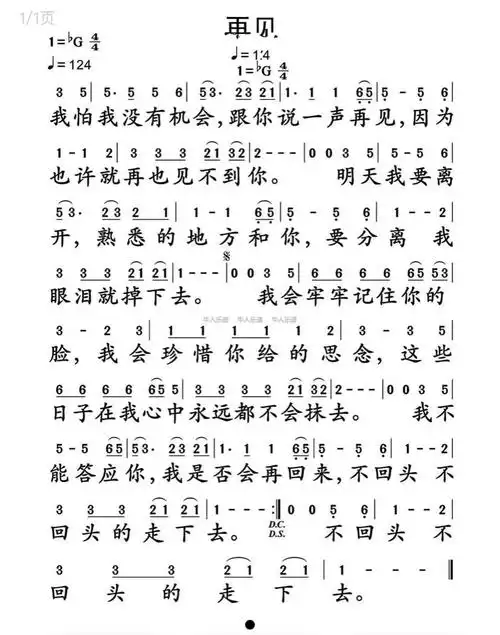 1/1页
再见
1=♭G 4/4
♩=124
1=♭G 4/4
3 5 | 5· 5 5 6 | 53· 23 21 | 1· 1 1 65 | 5 - 5 6 |
我怕我没有机会,跟你说一声再见,因为
1 - 1 2 | 3 3 3 21 32 | 2 - - - | 0 0 3 5 | 5 5 5 6 |
也许就再也见不到你。 明天我要离
53· 23 2 1 | 1 - 1 65 | 5 - 5 6 | 1 - - 2 |
开,熟悉的地方和你,要分离 我
3 3 3 21 21 | 1 - - - | 0 0 3 5 | 6 6 6 65 53 |
眼泪就掉下去。 我会牢牢记住你的
华人乐谱 华人乐谱 华人乐谱
3 - 2 3 | 1 1 1 1 1 2 | 3 - 3 5 |
脸,我会珍惜你给的思念,这些
6 6 6 6 65 5 | 3 3 3 3 21 32 | 2 - - - | 0 0 3 5 |
日子在我心中永远都不会抹去。 我不
5 - 5 6 | 53· 23 21 | 1· 1 1 65 | 5 - 5 6 | 1 - - 2 |
能答应你,我是否会再回来,不回头 不
3 3 3 21 21 | 1 - - - :‖ 0 0 5 6 | 1 - - 2 |
回头的走下去。 D.C. D.S. 不回头 不
3 3 3 21 21 | 1 - - - ‖
回头的走下去。